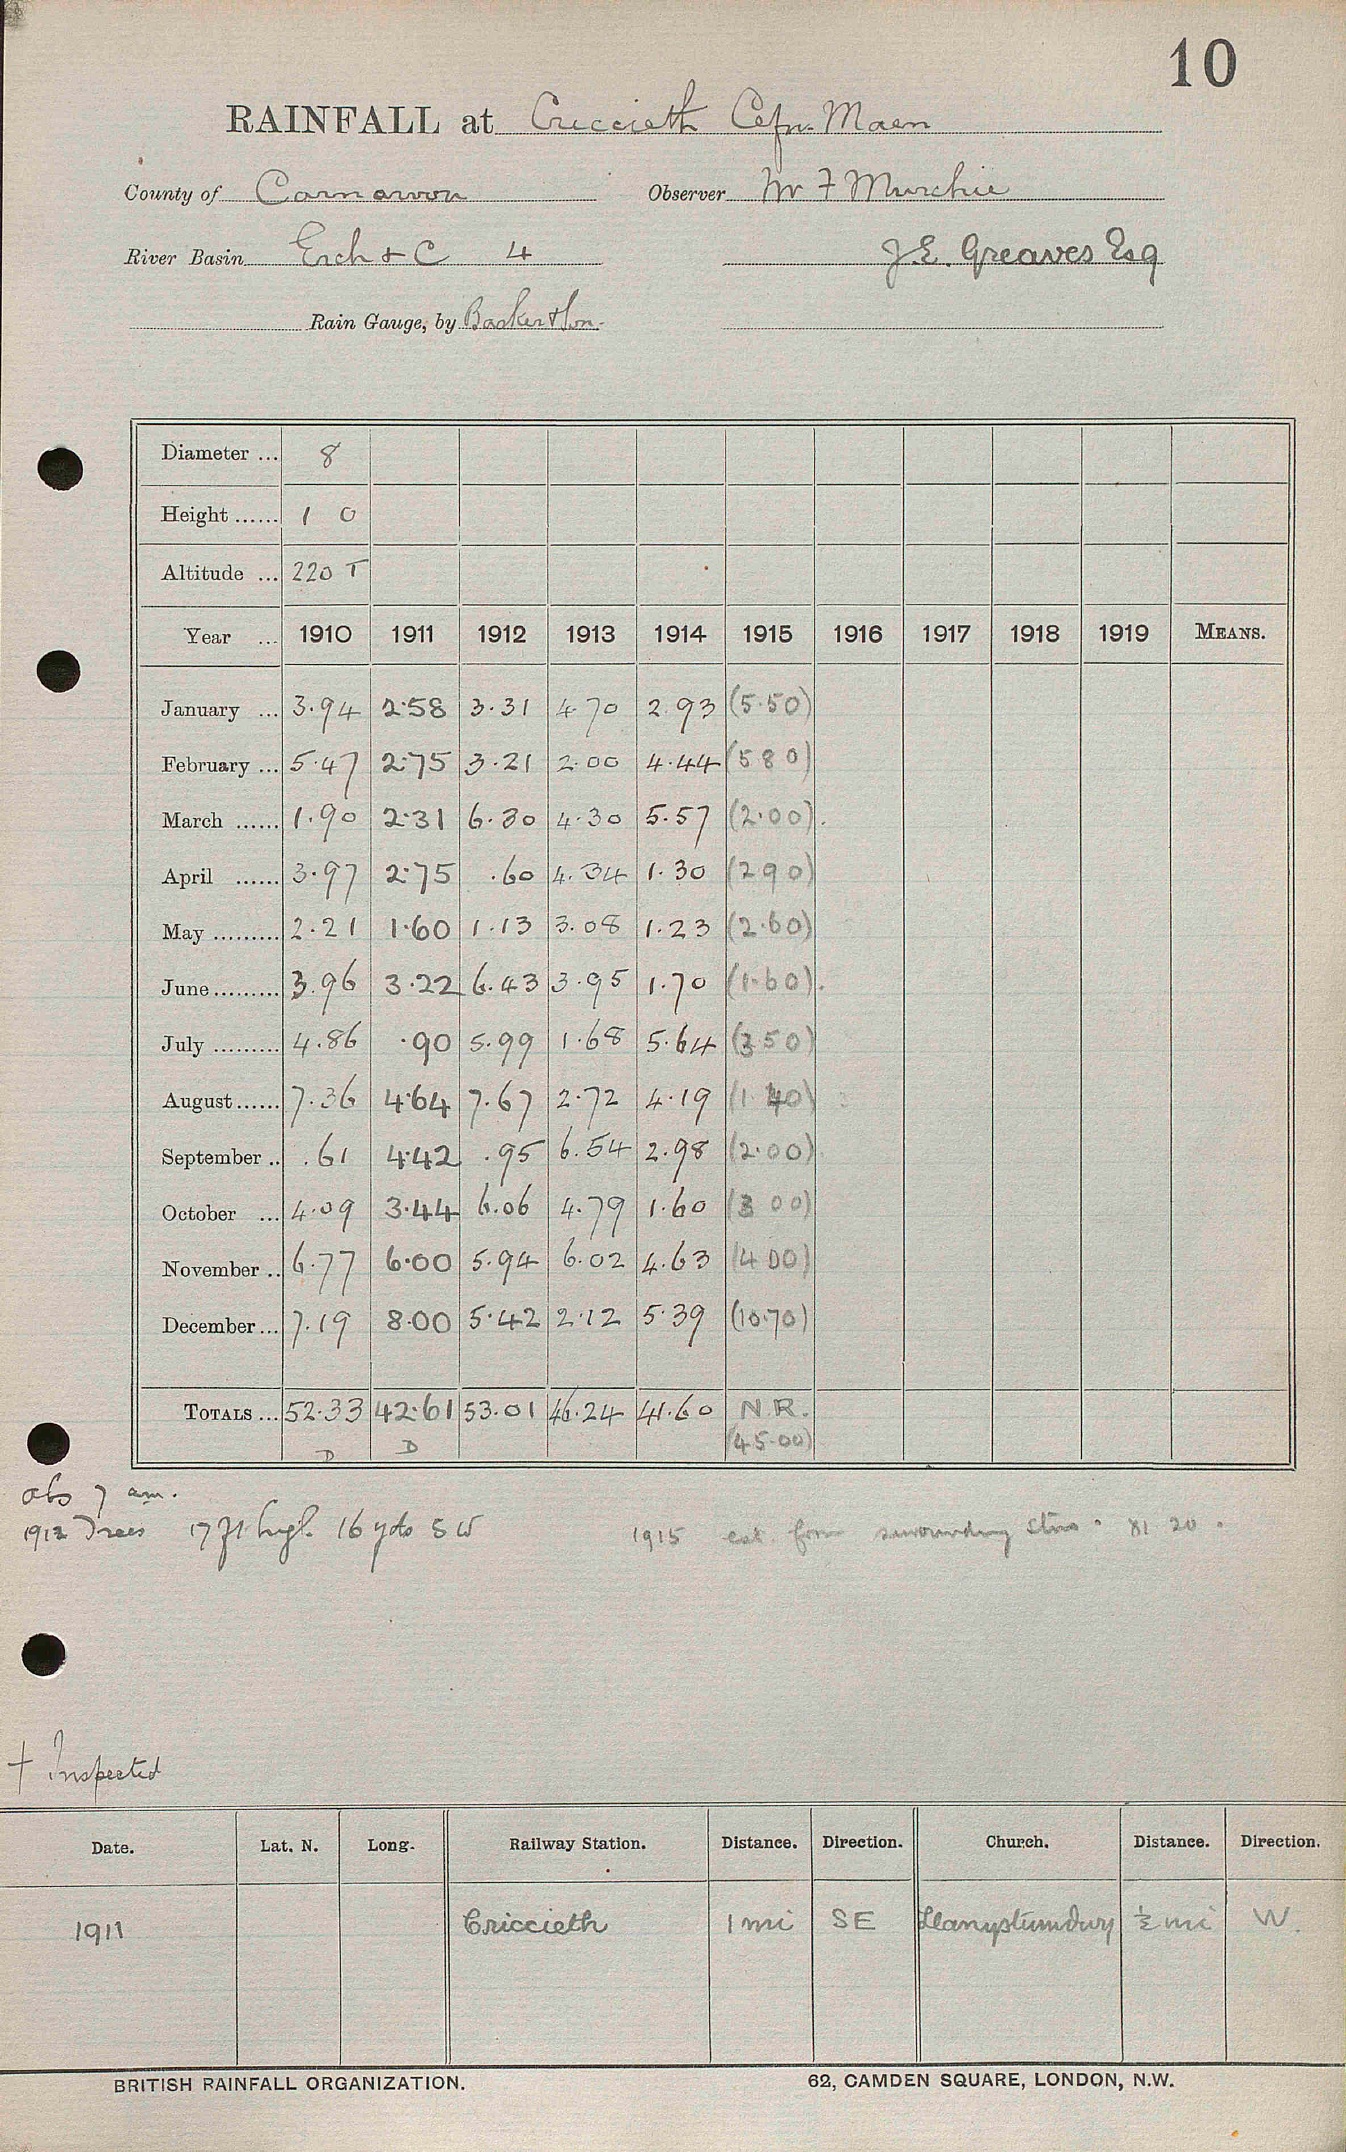 10
RAINFALL at Criccieth Cefn-Maen
County of Carnarvon Observer Mr F Murchie
River Basin Erch & C 4 J.E. Greaves Esq
Rain Gauge, by Basker & Son.
Diameter ... 8
Height ...... 1 0
Altitude ... 220 T
Year ... 1910 1911 1912 1913 1914 1915 1916 1917 1918 1919 MEANS.
January ... 3.94 2.58 3.31 4.70 2.93 (5.50)
February ... 5.47 2.75 3.21 2.00 4.44 (5 80)
March ...... 1.90 2.31 6.30 4.30 5.57 (2.00).
April ...... 3.97 2.75 .60 4.34 1.30 (2 90)
May ......... 2.21 1.60 1.13 3.08 1.23 (2.60)
June ......... 3.96 3.22 6.43 3.95 1.70 (1.60).
July ......... 4.86 .90 5.99 1.68 5.64 (3 50)
August ...... 7.36 4.64 7.67 2.72 4.19 (1 40)
September .. .61 4.42 .95 6.54 2.98 (2.00)
October ... 4.09 3.44 6.06 4.79 1.60 (3 00)
November .. 6.77 6.00 5.94 6.02 4.63 (4 00)
December ... 7.19 8.00 5.42 2.12 5.39 (10.70)
TOTALS ... 52.33 42.61 53.01 46.24 41.60 N.R.
D D (45.00)
obs 7 am.
1912 Trees 17 ft high 16 yds SW 1915 est. from surrounding stns. 31 20.
† Inspected
Date. Lat. N. Long. Railway Station. Distance. Direction. Church. Distance. Direction.
1911 Criccieth 1 mi SE Llanystumdwy ½ mi W.
BRITISH RAINFALL ORGANIZATION. 62, CAMDEN SQUARE, LONDON, N.W.